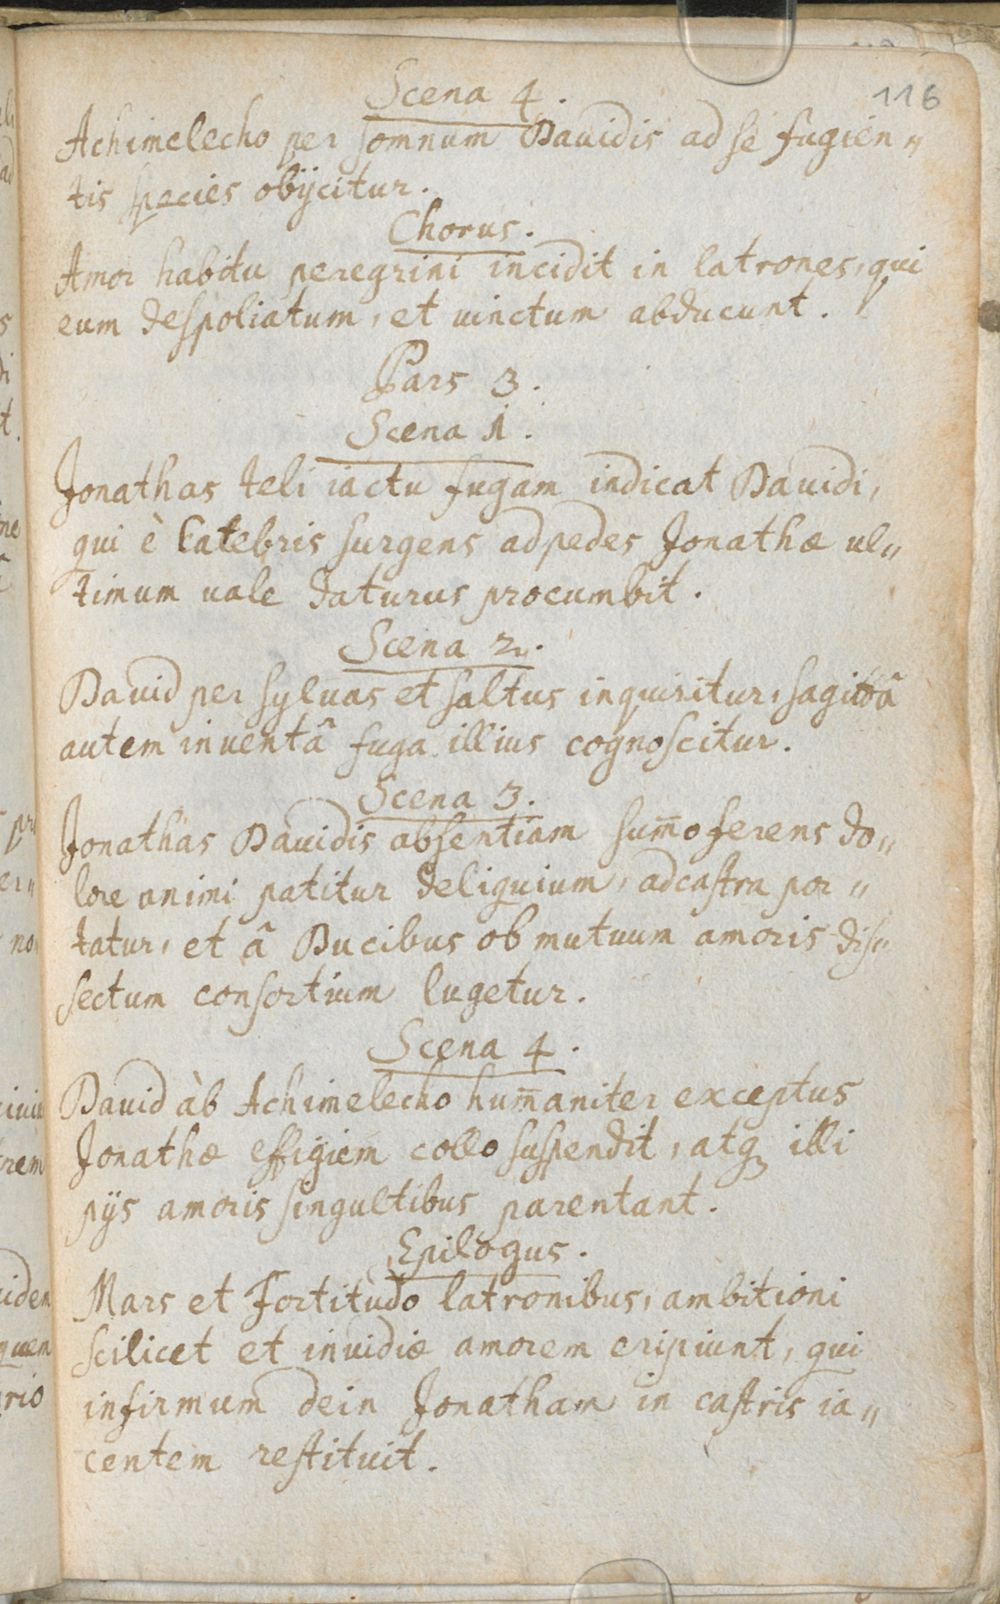 116
Scena 4.
Achimelecho per somnum Dauidis ad se fugien„
tis species obijcitur.
Chorus.
Amor habitu peregrini incidit in latrones, qui
eum despoliatum, et uinctum abducunt.
Pars 3.
Scena 1.
Jonathas teli iactu fugam indicat Dauidi,
qui è latebris surgens ad pedes Jonathæ ul„
timum uale daturus procumbit.
Scena 2.
Dauid per syluas et saltus inquiritur, sagittâ
autem inuentâ fuga illius cognoscitur.
Scena 3.
Jonathas Dauidis absentiam sum̄o ferens do„
lore animi patitur deliquium, ad castra por„
tatur, et â Ducibus ob mutuum amoris dis„
sectum consortium lugetur.
Scena 4.
Dauid àb Achimelecho hum̄aniter exceptus
Jonathæ effigiem collo suspendit, atq illi
pijs amoris singultibus parentant.
Epilogus.
Mars et Fortitudo latronibus, ambitioni
scilicet et inuidiæ amorem eripiunt, qui
infirmum dein Jonatham in castris ia„
centem restituit.